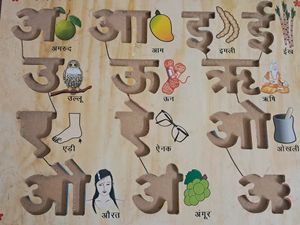 अ आ इ ई
अमरुद आम इमली ईख
उ ऊ ऋ
उल्लू ऊन ऋषि
ए ऐ ओ
एड़ी ऐनक ओखली
औ अं अः
औरत अंगूर